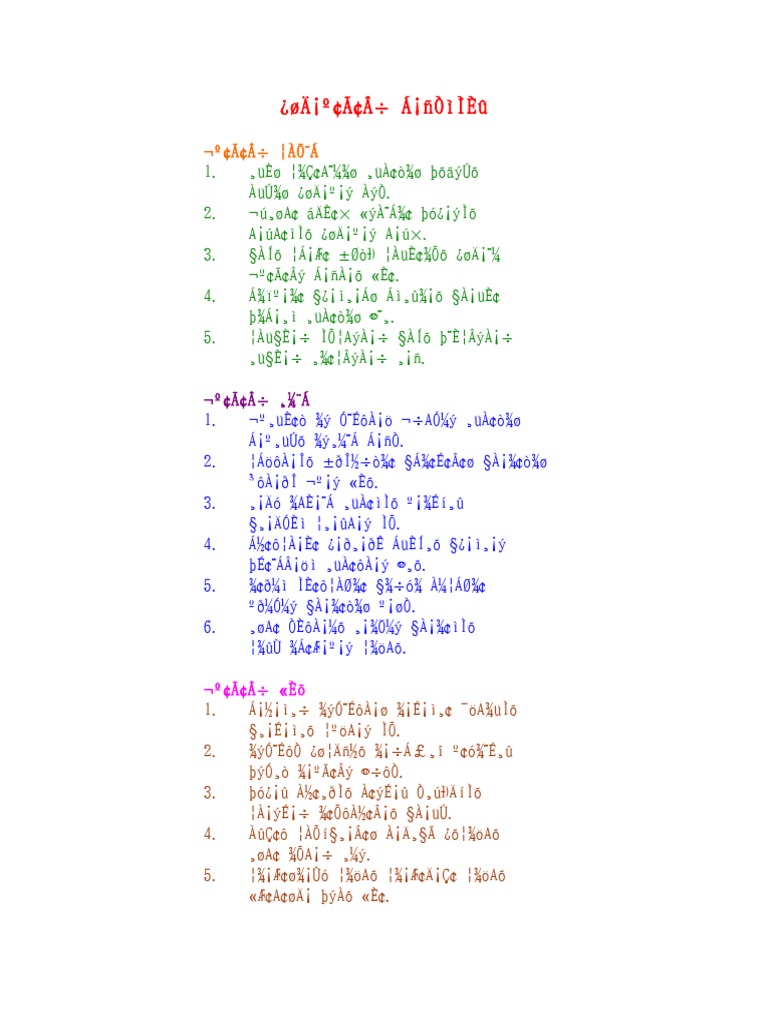 ¿øÄ¡º¢Ã¢Â÷ Á¡ñÒìÌÈû
¬º¢Ã¢Â÷ ¦ÀÕ¨Á
1. ¸üÈø ¦¾Ç¢A¨¼¾ø ¸üÀ¢ò¾ø þõãýÚõ
ÀüÚ¾ø ¿øÄ¡º¡ý ÀýÒ.
2. ¬ú¸øA¢ áÄÈ¢× «ýÀ¨Á¾¢ þó¿¡ýÌõ
A¡úA¢ìÌõ ¿øÄ¡º¡ý A¡ú×.
3. §ÀÍõ ¦Á¡Æ¢ ±Øòƚ ¦ÀüÈ¢¾Õõ ¿øÄ¡¨¼
¬º¢Ã¢Âý Á¡ñÀ¡õ «È¢.
4. Á¾ïº¡¾¢ §¿¡ì¸¡Áø Áì¸û¾¡õ §ÀüÈ¢
þ¾Á¡¸ì ¸üÀ¢ò¾ø ©¨¸.
5. ¦Àü§È¡÷ ÌÕ¦AýÀ¡÷ §ÀÍõ þ¨È¦ÂýÀ¡÷
¸ü§È¡÷ ¸¾¢¦ÂýÀ¡÷ ¸¡ñ.
¬º¢Ã¢Â÷ ¸¼¨Á
1. ¬º¸üÈ¢ò ¾ý Ó¨ÉôÀ¡ö ¬÷AÓ¼ý ¸üÀ¢ò¾ø
Á¡º¸üÚõ ¾ý¸¼¨Á Á¡ñÒ.
2. ¦ÁöôÀ¡Îõ ±ðÎ½÷ò¾¢ §Á¾¢É¢Â¢ø §À¡¾¢ò¾ø
³ôÀ¡ðÎ ¬º¡ý «Èõ.
3. ¸¡Äó ¾AÈ¡¨Á ¸üÀ¢ìÌõ º¡¾Éí¸û
§¸¡ÄÓÈì ¦¸¡ûA¡ý ÌÕ.
4. Á½¢ô¦À¡È¢ ¿¡ð¸¡ðÊ ÁüÈÍ¸õ §¿¡ì¸¡ý
þÉ¢¨ÁÂ¡öì ¸üÀ¢ôÀ¡ý ©¸õ.
5. ¾¢ð¼ì ÌÈ¢ô¦ÀØ¾¢ §¾÷ó¾ À¼¦ÁØ¾¢
ºð¼Ó¼ý §À¡¾¢ò¾ø º¡øÒ.
6. ¸øA¢ ÒÈôÀ¡¼õ ¸¡¾Ö¼ý §À¡¾¢ìÌõ
¦¾ûÙ ¾Á¢Æ¡º¡ý ¦¾öAõ.
¬º¢Ã¢Â÷ «Èõ
1. Á¡½¡ì¸÷ ¾ýÓ¨ÉôÀ¡ø ¾¡É¡ì¸¢ ¯öA¾üÌõ
§¸¡É¡ì¸õ ¦ºöA¡ý ÌÕ.
2. ¾ýÓ¨ÉôÒ ¿ø¦Äñ½õ ¾¡÷Á£¸î º¢ó¾¨É¸û
þýÓ¸ò ¾¡º¢Ã¢Âý ©÷ôÒ.
3. þó¿¡û À½¢¸ðÌõ À¢ýÉ¡û Ò¸úƚÄíÌõ
¦À¡ýÉ¡÷ ¾¢ÕôÀ½¢Â¡õ §À¡üÚ.
4. ÀûÇ¢ô ¦ÀÕí§¸¡Â¢ø À¡Ä¸§Ã ¿õ¦¾öAõ
¸øA¢ ¾ÕA¡÷ ¸¼ý.
5. ¦¾¡Æ¢ø¾¡Ûó ¦¾öAõ ¦¾¡Æ¢Ä¡Ç¢ ¦¾öAõ
«Æ¢A¢øÄ¡ þýÀõ «È¢.